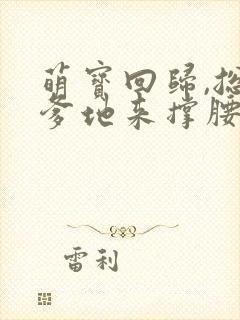 萌寶回歸,總
爹地來撐腰
雷利